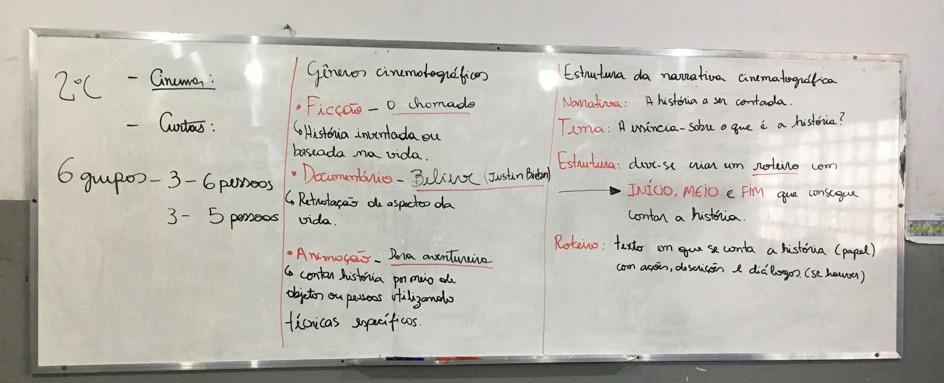 2ºC
- Cinema:
- Curtas:
6 grupos - 3 - 6 pessoas
3 - 5 pessoas
Gêneros cinematográficos
• Ficção - O chamado
↳ História inventada ou
baseada na vida.
• Documentário - Believe (Justin Bieber)
↳ Retratação de aspectos da
vida.
• Animação - Dora aventureira
↳ contar história por meio de
objetos ou pessoas utilizando
técnicas específicas.
Estrutura da narrativa cinematográfica
Narrativa: A história a ser contada.
Tema: A essência - sobre o que é a história?
Estrutura: deve-se criar um roteiro com
→ INÍCIO, MEIO e FIM que consegue
contar a história.
Roteiro: texto em que se conta a história (papel)
com ações, descrições e diálogos (se houver)